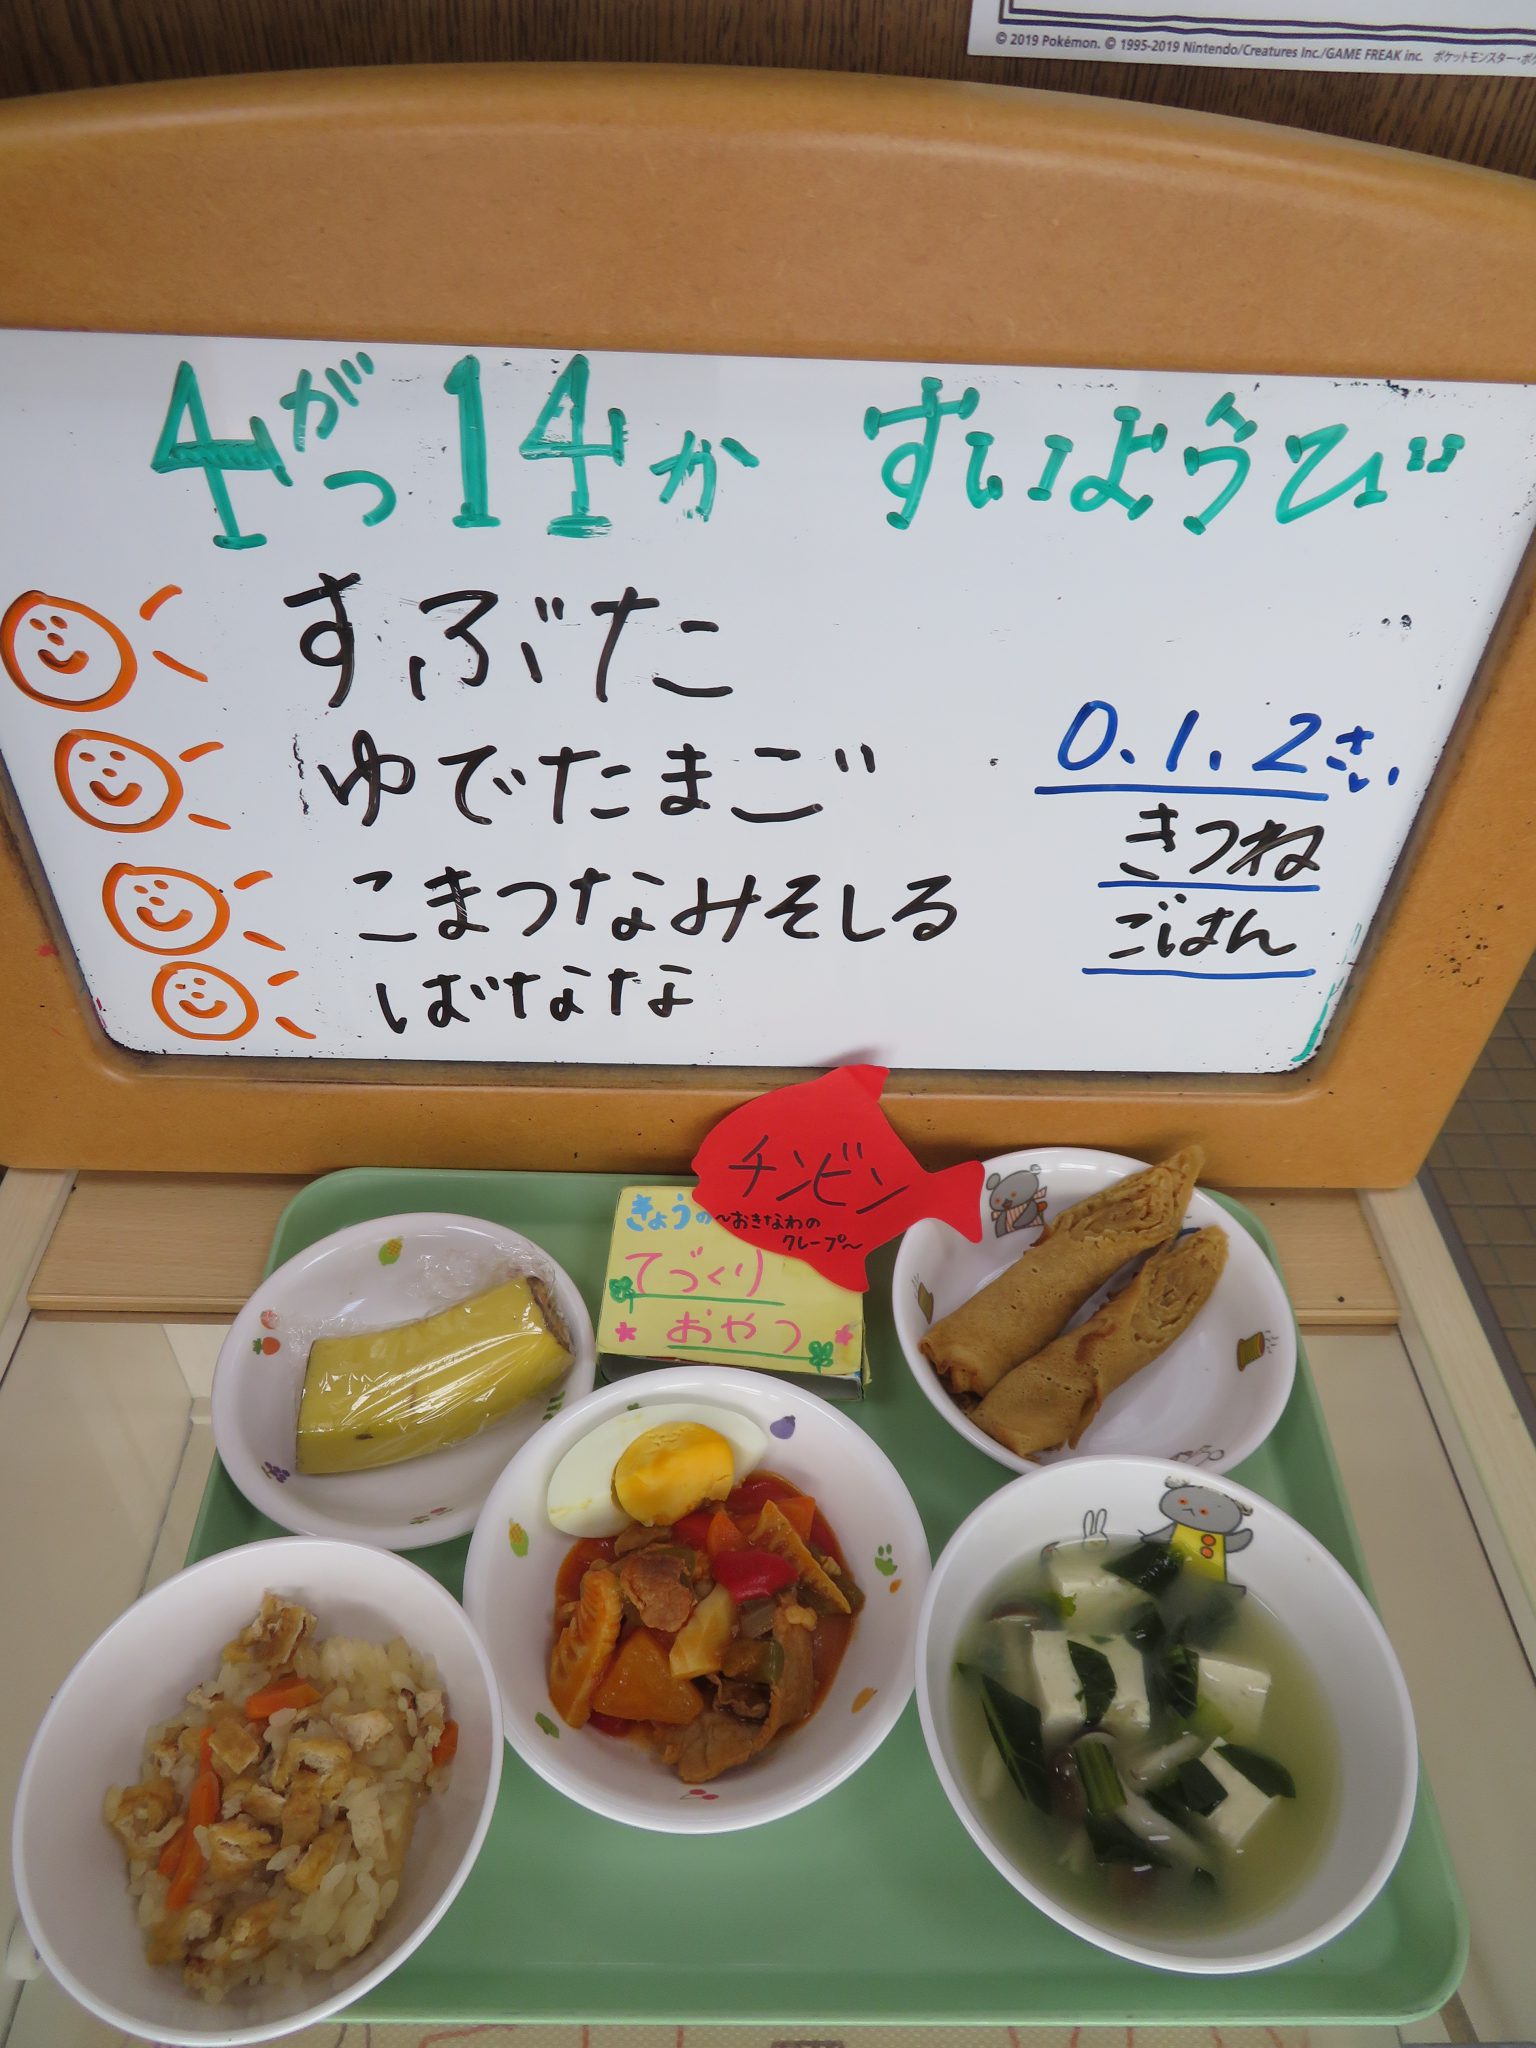 © 2019 Pokémon. © 1995-2019 Nintendo/Creatures Inc./GAME FREAK inc. ポケットモンスター・ポケ
4がつ14か すいようび
すぶた
ゆでたまご
こまつなみそしる
ばなな
0.1.2さい
きつね
ごはん
チンビン
~おきなわの
クレープ~
きょうの
てづくり
おやつ